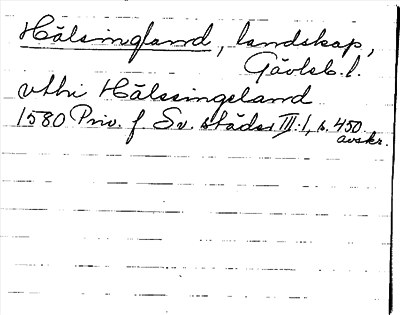 Hälsingland, landskap,
Gävleb. l.
vthi Hälssingeland
1580 Priv. f. Sv. städer III:1, s. 450
avskr.